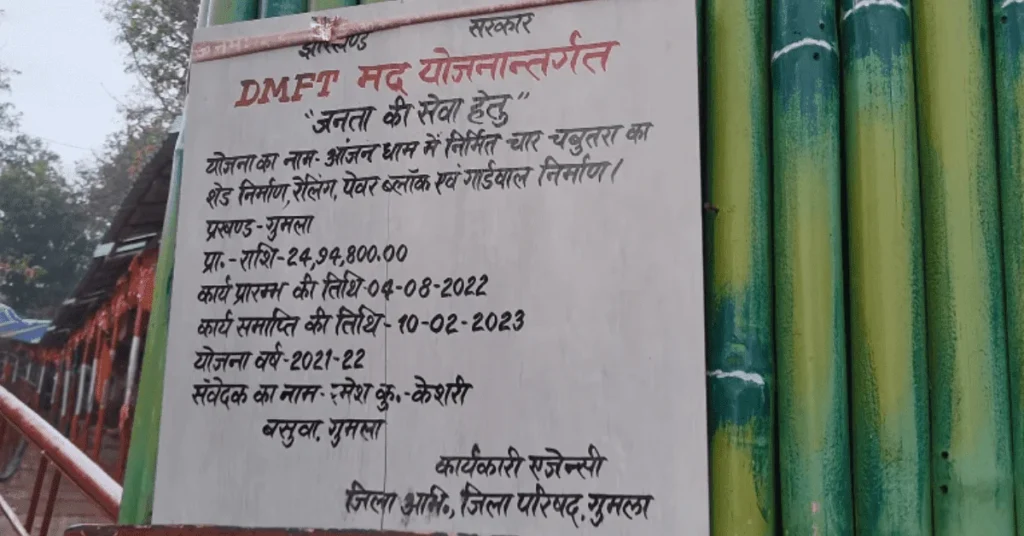 झारखण्ड सरकार
DMFT मद योजनान्तर्गत
"जनता की सेवा हेतु"
योजना का नाम- आंजन धाम में निर्मित चार चबुतरा का
शेड निर्माण, रेलिंग, पेवर ब्लॉक एवं गार्डवाल निर्माण।
प्रखण्ड-गुमला
प्रा.-राशि-24,94,800.00
कार्य प्रारम्भ की तिथि-04-08-2022
कार्य समाप्ति की तिथि-10-02-2023
योजना वर्ष-2021-22
संवेदक का नाम-रमेश कु.-केशरी
बसुवा, गुमला
कार्यकारी एजेन्सी
जिला अभि., जिला परिषद, गुमला